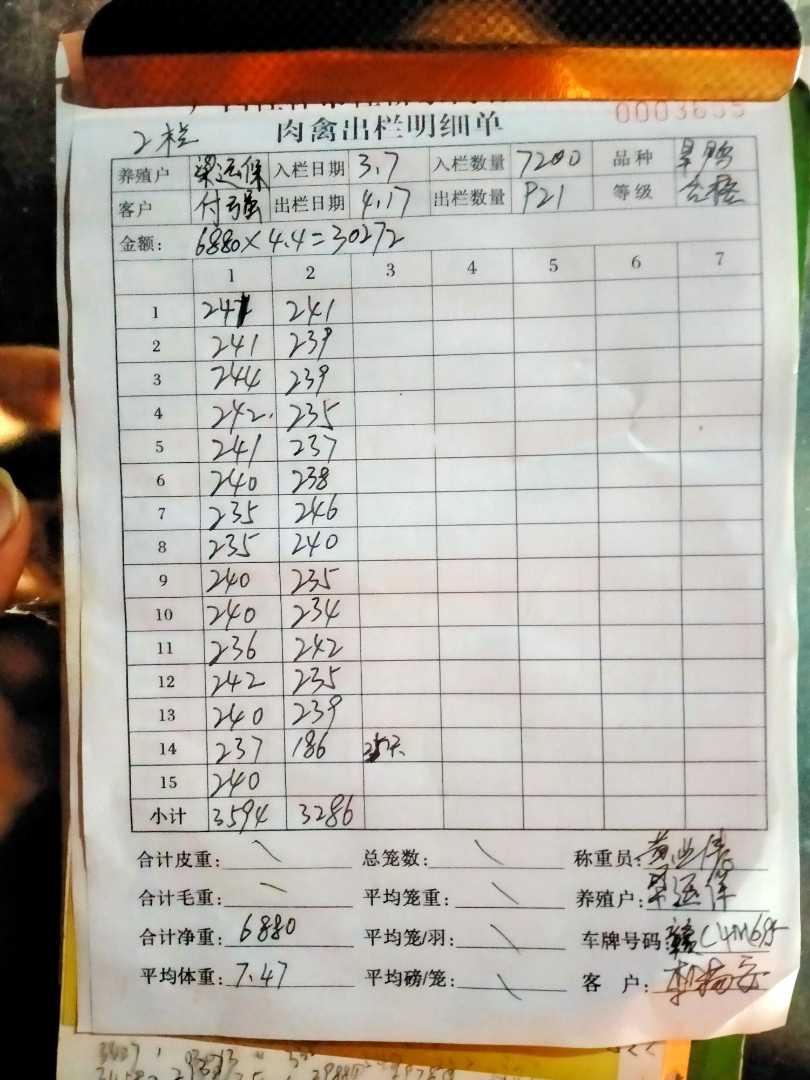 0003655
肉禽出栏明细单
2栏
养殖户 梁运保 入栏日期 3.7 入栏数量 7200 品种
客户 付强 出栏日期 4.17 出栏数量 921 等级 合格
金额: 6880×4.4=30272
1 2 3 4 5 6 7
1 241 241
2 241 239
3 244 239
4 242. 235
5 241 237
6 240 238
7 235 246
8 235 240
9 240 235
10 240 234
11 236 242
12 242 235
13 240 239
14 237 186
15 240
小计 3594 3286
合计皮重: \ 总笼数: \ 称重员:
合计毛重: \ 平均笼重: \ 养殖户: 梁运保
合计净重: 6880 平均笼/羽: \ 车牌号码: 赣C4M685
平均体重: 7.47 平均磅/笼: \ 客 户: